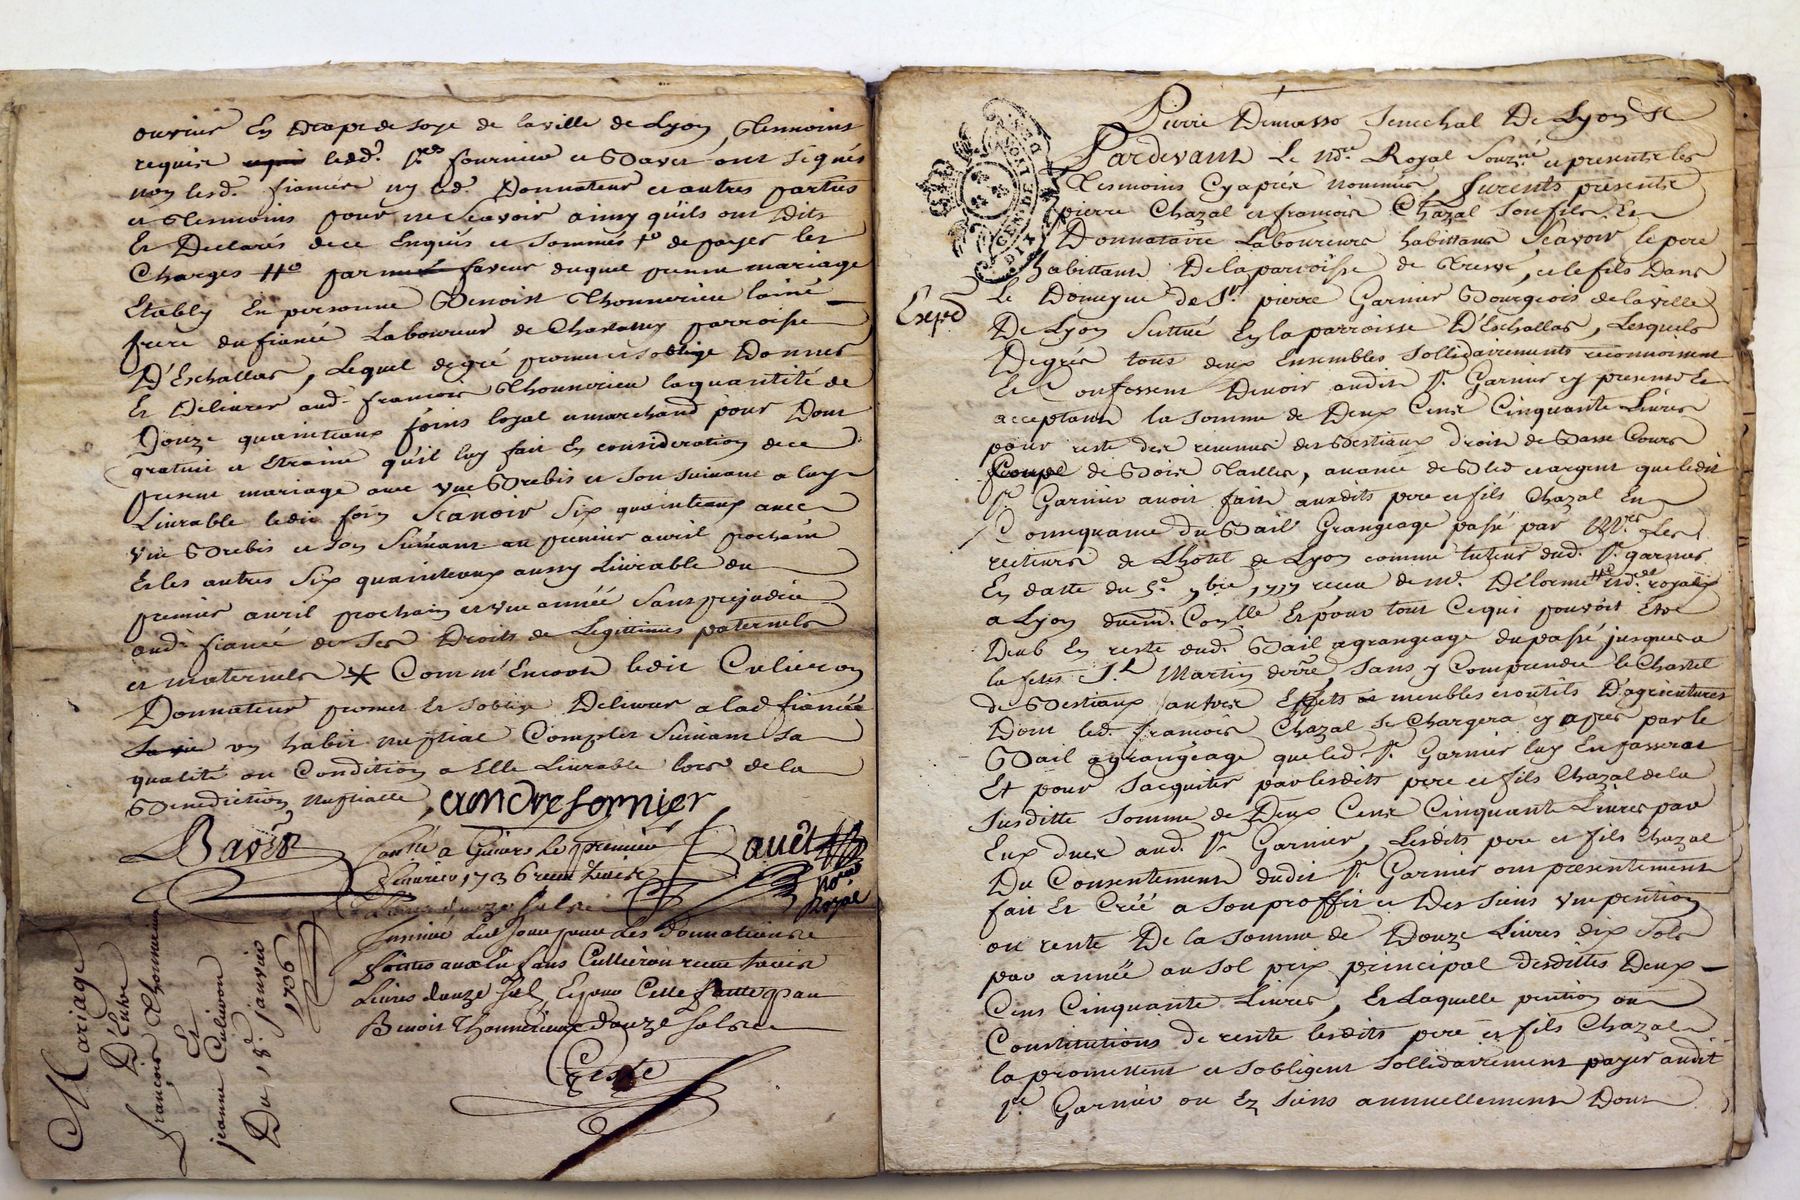 ouvrier En Drap de soye de la ville de Lyon, tesmoins
requise led. Srs fournier et Bavet ont signés
non lesd. fiancés ny led. Donnateur et autres parties
et tesmoins pour ne sçavoir ainsy qu'ils ont dits
Et Declarés de ce Enquis et sommés de payer les
Charges par faveur duquel presant mariage
Etably En personne Benoist Thonnerieu laine
frere du fiancé Laboureur de Chassagny parroisse
D'Eschallas, Lequel de gré promet et s'oblige Donner
Et Delivrer aud. françois Thonnerieu la quantité de
Douze quainteaux foins loyal et marchand pour Don
gratuit et Etraine qu'il luy fait En consideration de ce
presant mariage avec une Brebis et son suivant a luy
Livrable ledit foin Scavoir Six quainteaux avec
une Brebis et son suivant au premier avril prochain
Et les autres Six quainteaux aussy Livrable au
premier avril prochain et une année Sans prejudice
aud. fiancé de ses Droits de Legittimes paternels
et maternels * Comm' Encore ledit Culieron
Donnateur promet Et s'oblige Delivrer a lad. fiancée
un habit nuptial Complet Suivant sa
qualité ou Condition a Elle Livrable lors de la
Benediction nuptialle
andre fornier
Bavet
Bavet
Nore
Royal
a Givors Le premier
fevrier 1736
douze sols
des donnations
faittes aux Culliéron
Livres douze sols Et pour Cette faitte par
Benoit Thonnerieux douze sols
Geste
Mariage
D'Entre
françois Thonnerieu
Et
jeanne Culieron
Du 18e janvier
1736
Pierre Dumasso Senechal De Lyon Et
GEN. DE LYON
DIX
Pardevant Le Nore Royal Souzné et presents les
Tesmoins Cyaprés nommés, furents presents
pierre Chazal et françois Chazal Son fils Et
Donnataire Laboureurs habittans Scavoir le pere
habittant De la parroisse de Treve, et le fils Dans
Exped
Le Domeyne de Sr. pierre Garnier Bourgeois de la ville
De Lyon Scittué En la parroisse D'Eschallas, Lesquels
De grés tous deux Ensembles Sollidairements reconnoissent
Et Confessent Devoir audit Sr. Garnier cy present Et
acceptant la somme de Deux Cent Cinquante Livres
pour reste des revenus des Bestiaux droits de Basse Cour
Coupe de Bois Tailles, avance de Bled et argent que ledit
Sr. Garnier avoit fait auxdits pere et fils Chazal En
Consequance du Bail Grangeage passé par Mrs. Les
recteurs de L'hotel de Lyon comme tuteur dud. Sr. garnier
En datte du 5e. 9bre 1717 receu de Me. Delorme Nore royal
a Lyon Et pour tout Cequi pouvoit Etre
Deub En reste dud. Bail a grangeage du passé jusques a
la feste St. Martin derre, Sans y Comprendre le Chastel
de Bestiaux autres Effets et meubles et outils D'agricultures
Dont led. françois Chazal Se Chargera cy apres par le
Bail a grangeage que led. Sr. Garnier luy En passerat
Et pour S'acquiter par lesdits pere et fils Chazal de la
Susditte Somme de Deux Cent Cinquante Livres par
Eux dues aud. Sr. Garnier, Lesdits pere et fils Chazal
Du Consentement dudit Sr. Garnier ont presentement
fait Et Créé a Son proffit et Des siens une pention
ou rente De la Somme de Douze Livres dix Sols
par année au Sol prix principal desdittes Deux
Cent Cinquante Livres, Et Laquelle pention ou
Constitutions de rente lesdits pere et fils Chazal
la promettent et s'obligent Sollidairement payer audit
Sr. Garnier ou Ez Siens annuellement Dont